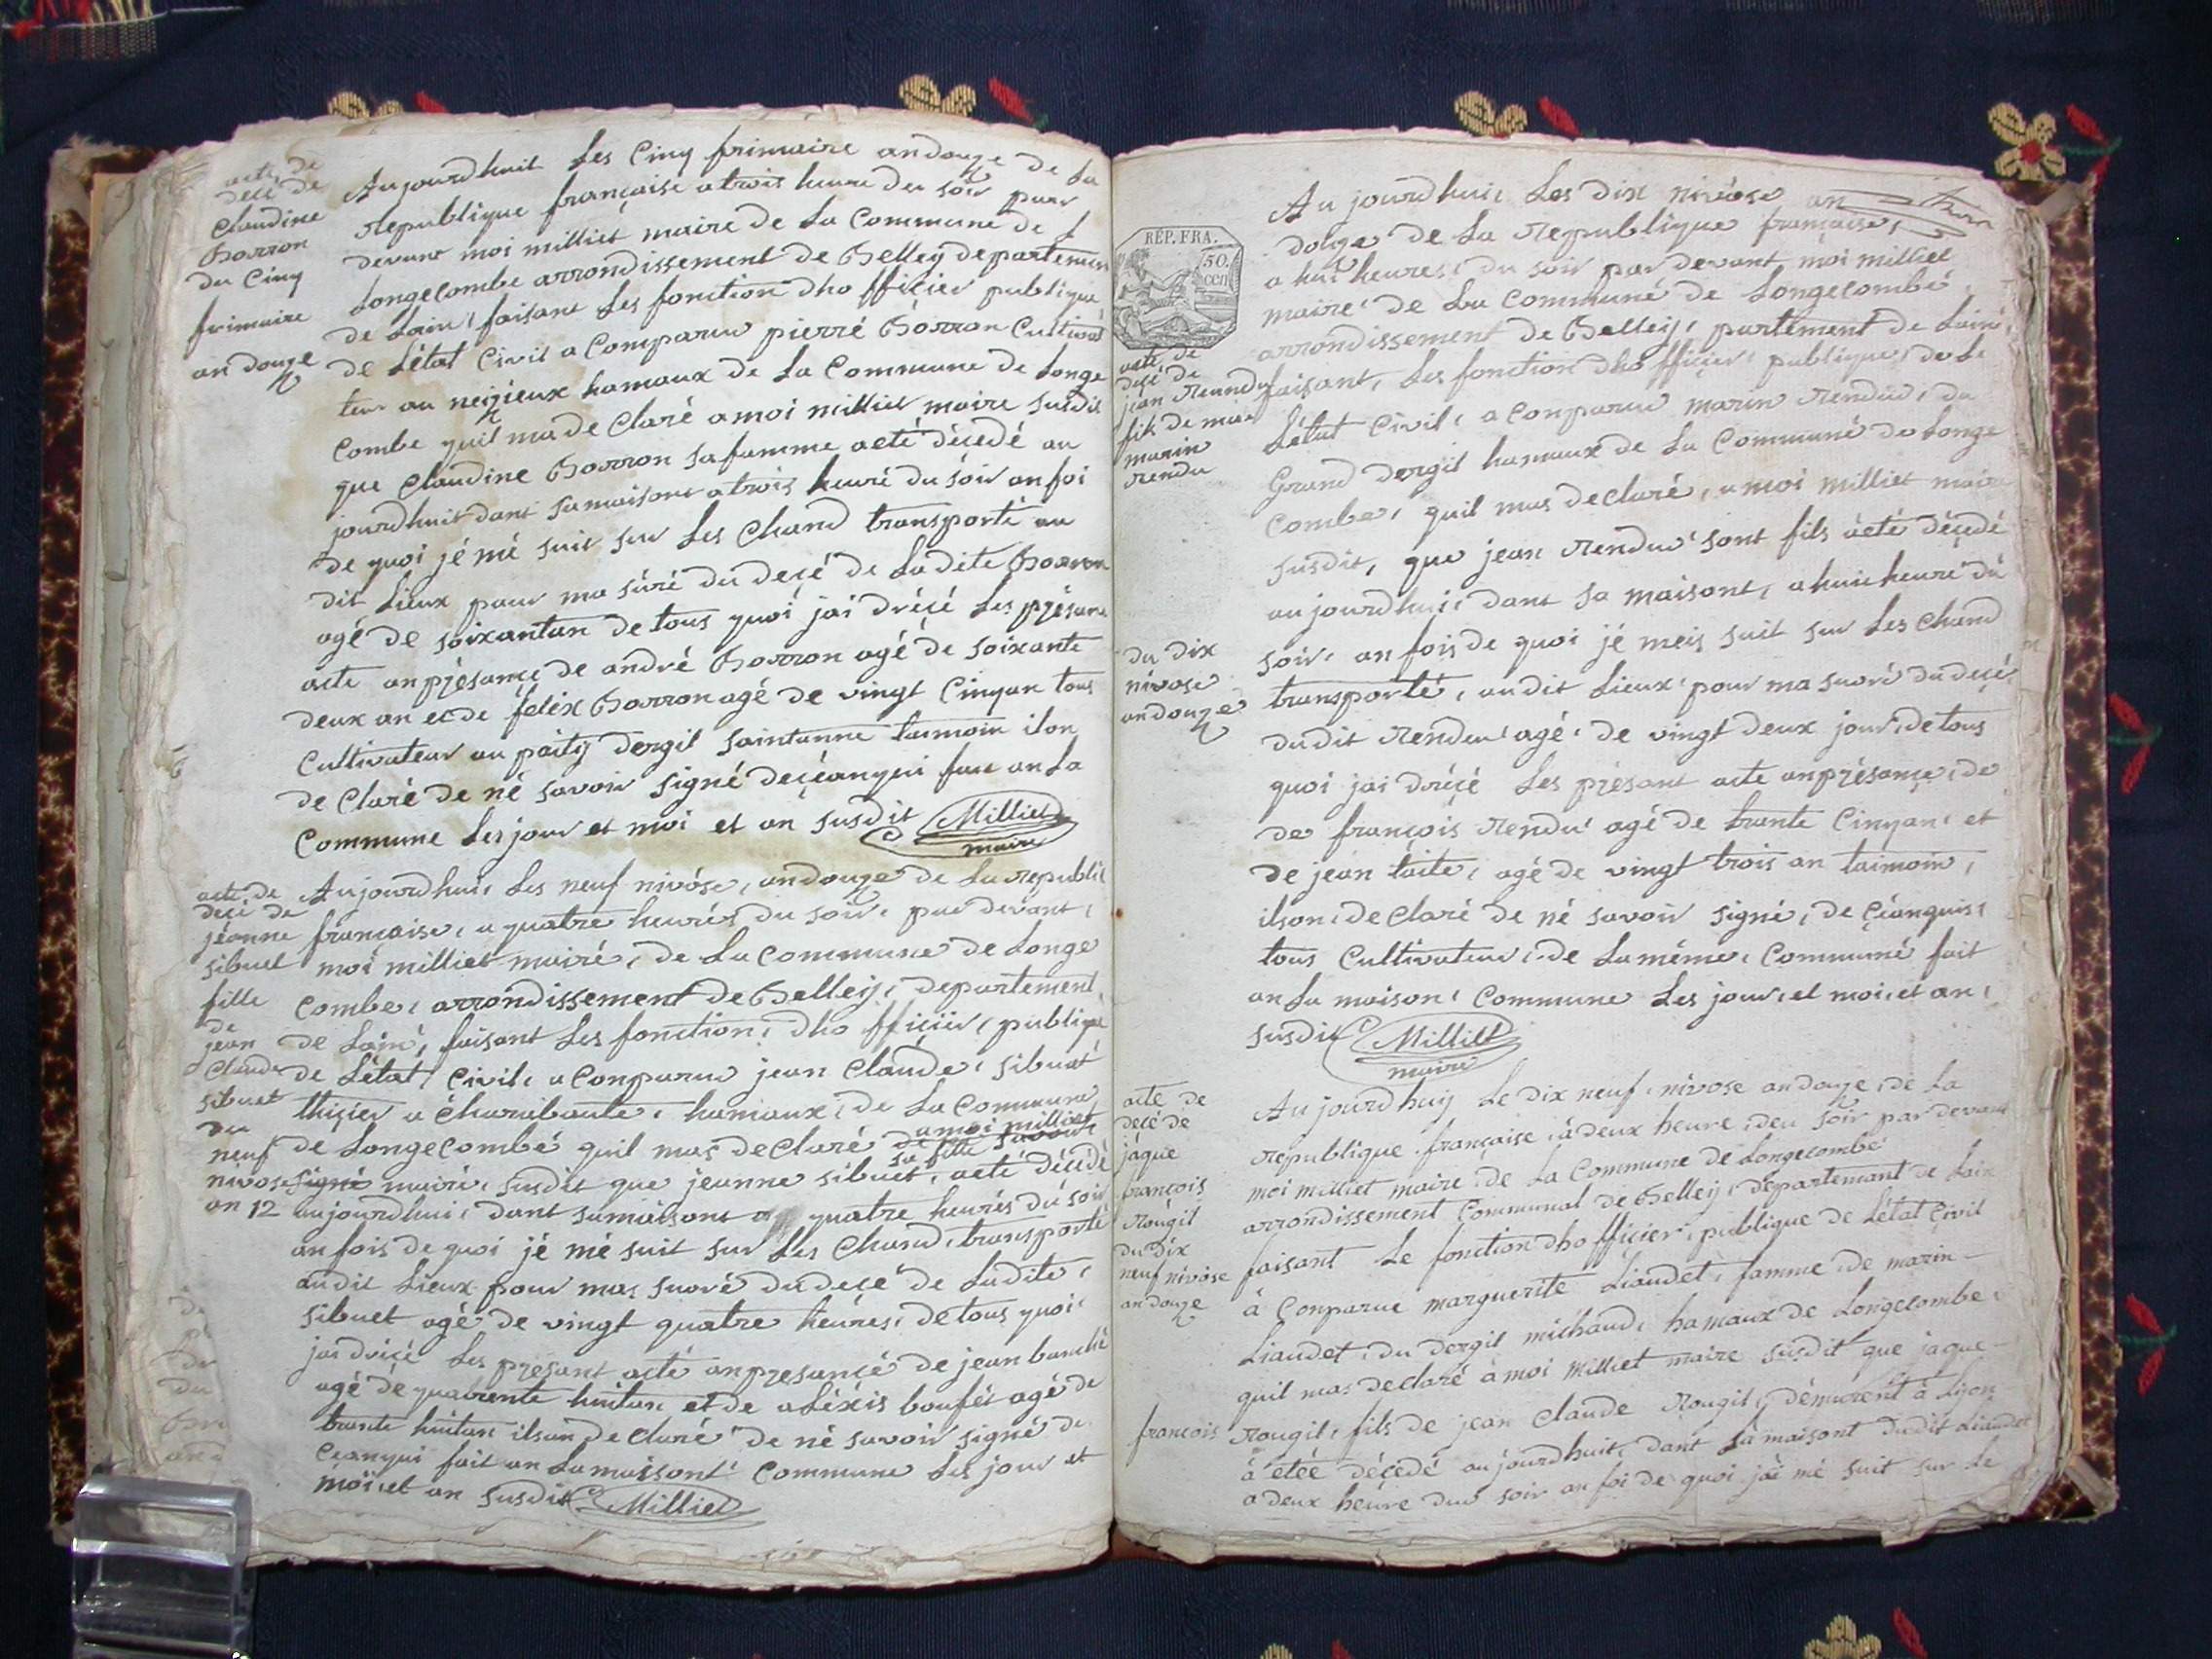 acte de
decé de
Claudine
Borron
du Cinq
frimaire
an douze
Aujourdhuit Les Cinq frimaire an douze de La
republique française a trois heure deu soir par
devant moi milliet maire de La Commune de L
Longecombe arrondissement de Belleÿ departemen
de Lain faisant Les fonction dhofficier publique
de Létat Civil a Comparu pierré Borron Cultiva
teur au hamaux de La Commune de Longe
Combe quil ma de Claré a moi milliet maire susdit
que Claudine Borron sa famme aété décedé au
jourdhuit dant sa maisont a trois heuré du soir an foi
de quoi jé mé suit sur Les Chand transporté au
dit Lieux pour ma süré du deçé de Ladite Borron
agé de soixantan de tous quoi jai dréçé Les présant
acte anprésance de andré Borron agé de soixante
deux an et de félix Borron agé de vingt Cinqan tous
Cultivateur au dergit taimoin ilon
de Claré de né savoir signé deçéanqui fait an La
Commune Les jour et moi et an susdit Milliet
maire
acte de
decé de
jéanne
sibuet
fille
de
jean
Claude
sibuet
du
neuf
nivose
an 12
Aujourdhui, Les neuf nivóse, an douze de La republi
française, a quatre heurés du soir, par devant,
moi milliet mairé, de La Commune de Longe
Combe, arrondissement de Belleÿ, departement,
de Lain, faisant Les fonction, dhofficiér, publique
de Létat, Civil, a Conparu jean Claude, sibuet
thisier a Charabaute, hamaux, de La Commune
de Longecombé quil mas de Claré de ne savoir
a moi milliet
sa fille
signé mairé, susdit que jeanne sibuet, aété décédé
aujourdhui, dant sa maisont a quatre heurés du soir
an fois de quoi jé mé suit sur Les Chand, transporté
audit Lieux pour mas suoré du deçé de Ladite,
sibuet agé de vingt quatre heures, de tous quoi
jai driçé Les présant acté anpresançé de jean
agé de quatrente huitan et de aLéxis boufét agé de
trante huitan ilson de Claré de né savoir signé de
Çeanqui fait an La maissont Commune Les jour et
moi, et an susdit Milliet
RÉP. FRA.
50.
cen
acte de
deçé de
jean Rendu
fils de mar
marin
rendu
du dix
nivose
an douze
Aujourdhui, Les dix nivóse an
douze de La republique française,
a huit heures, du soir par devant moi milliet
maire de La Communé de Longecombé
arrondissement de Belleÿ, partement de Lain,
faisant, Les fonction dhofficier publique, de Le
Létat Civil, a Conparu marin Rendu, du
Grand dergit hamaux de La Communé de Longe
Combe, quil mas de Claré, a moi milliet maire
susdit, que jean Rendu sont fils aété décédé
aujourdhui, dant sa maisont, a huit heure du
soir, an fois de quoi jé meis suit sur Les Chand
transporté, audit Lieux pour ma suoré du deçé,
dudit Rendu agé, de vingt deux jour, de tous
quoi jai dréçé Les présant acte anprésançe, de
de françois Rendu agé de trante Cinqan, et
de jean taite, agé de vingt trois an taimoin,
ilson, de Claré de né savoir signé, de Çéanquis,
tous Cultivateur, de La méme, Communé fait
an La maison, Commune Les jour, et moi, et an,
susdit Milliet
maire
acte de
decé de
jáque
françois
Rougit
du dix
neuf nivóse
an douze
françois
Aujourdhuÿ Le dix neuf, nivose an douze, de La
republique française, à deux heure, deu soir par devant
moi milliet maire, de La Commune de Longecombe
arrondissement Communal de Belleÿ, departemant de Lain
faisant Le fonction dhofficier, publique de Létat Civil
à Conparue marguerite Liaudet, famme, de marin-
Liaudet, du dergit michaud, hamaux de Longecombe,
quil mas de claré à moi milliet maire susdit que jaque-
Rougit, fils de jean Claude Rougit, démürent à Lÿon
à etéé décedé aujourdhuit, dant La maisont dudit Liaudet
a deux heure deu soir an foi de quoi jáè mé suit sur Le